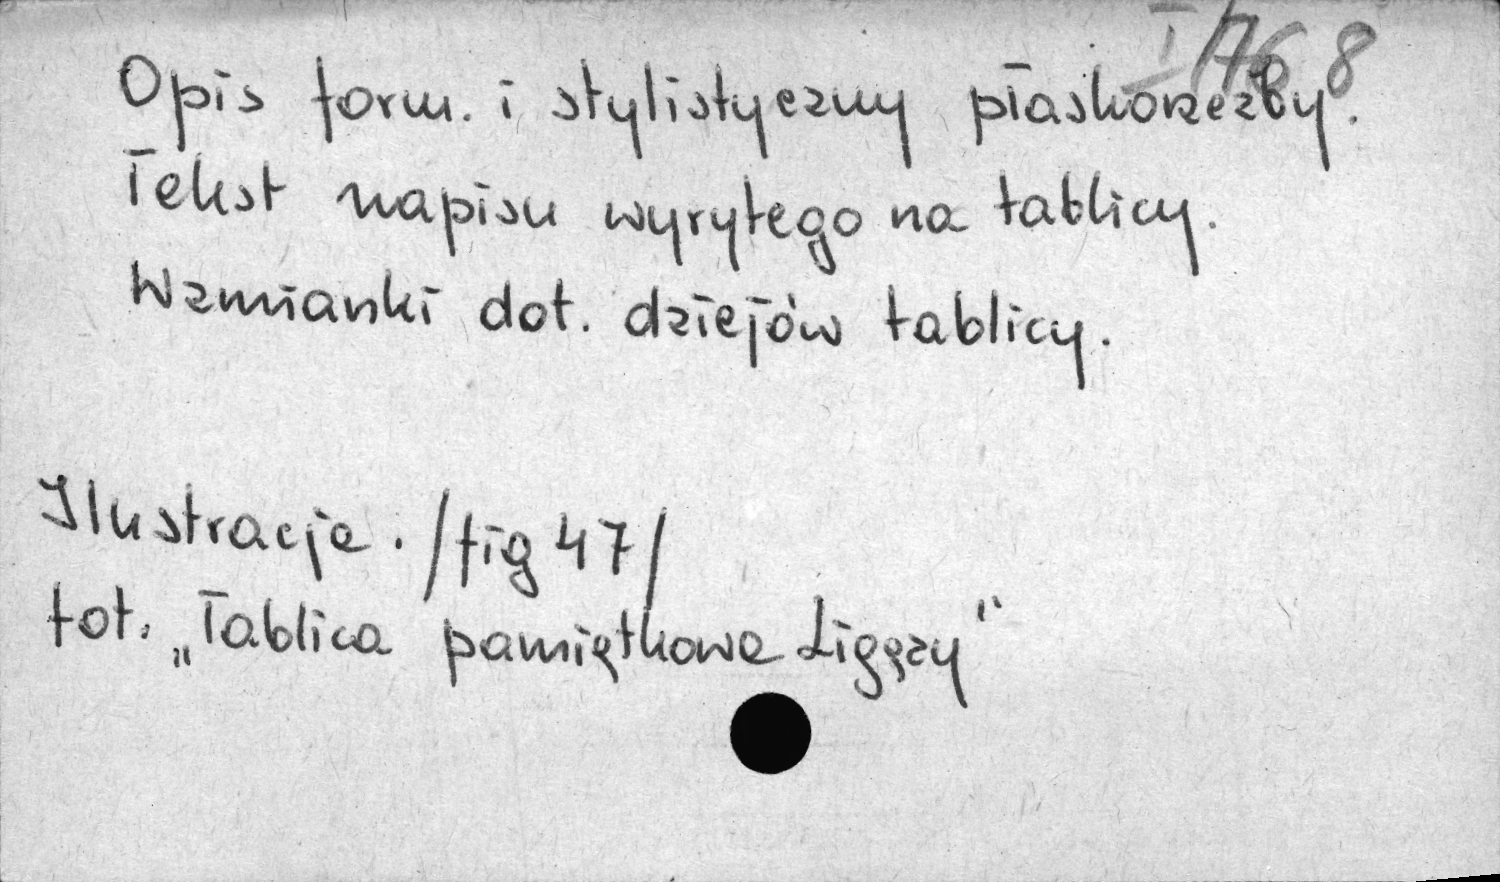 I/768
Opis form. i stylistyczny płaskorzeźby.
Tekst napisu wyrytego na tablicy.
Wzmianki dot. dziejów tablicy.
Ilustracje. /fig 47/
fot. „Tablica pamiątkowa Ligęzy"